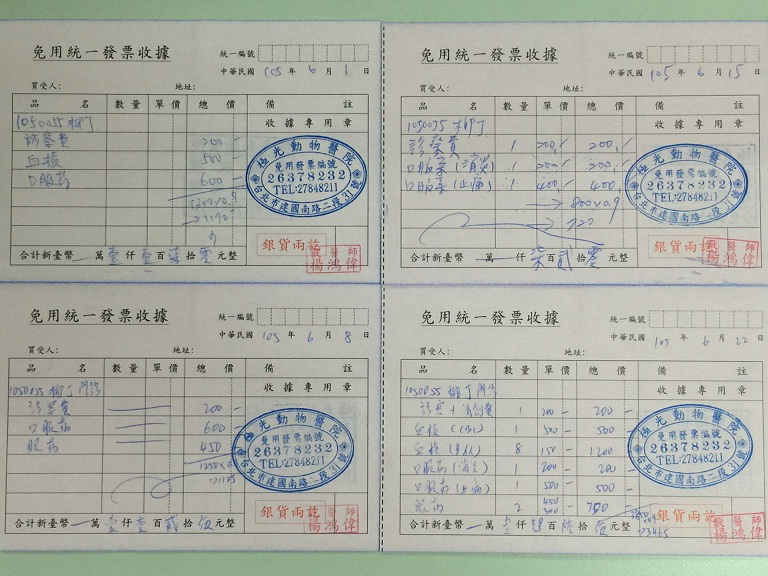 免用統一發票收據
統一編號
中華民國 105 年 6 月 1 日
買受人： 地址：
品名 數量 單價 總價 備註
收據專用章
1050055 柳丁
診察費 200 -
血檢 500 -
口服药 600 -
極光動物醫院
免用發票編號
26378232
TEL:27848211
台北市建國南路二段31號
銀貨兩訖
獸醫師
楊鴻偉
合計新臺幣 萬 壹 仟 壹 百 柒 拾 零 元整
免用統一發票收據
統一編號
中華民國 105 年 6 月 15 日
買受人： 地址：
品名 數量 單價 總價 備註
收據專用章
1050055 柳丁
診察費 1 200 200
口服藥 (消炎) 1 200 200
口服藥 (止痛) 1 400 400
→ 800×0.9
→ 720
極光動物醫院
免用發票編號
26378232
TEL:27848211
台北市建國南路二段31號
銀貨兩訖
獸醫師
楊鴻偉
合計新臺幣 萬 仟 柒 百 貳 拾 零 元整
免用統一發票收據
統一編號
中華民國 105 年 6 月 8 日
買受人： 地址：
品名 數量 單價 總價 備註
收據專用章
1050055 柳丁
診察費 200 -
口服药 600 -
眼药 450
極光動物醫院
免用發票編號
26378232
TEL:27848211
台北市建國南路二段31號
銀貨兩訖
獸醫師
楊鴻偉
合計新臺幣 萬 壹 仟 壹 百 貳 拾 伍 元整
免用統一發票收據
統一編號
中華民國 105 年 6 月 22 日
買受人： 地址：
品名 數量 單價 總價 備註
收據專用章
1050055 柳丁
1 200 - 200 -
血檢 1 500 - 500 -
血檢 8 150 - 1200 -
口服药 (消炎) 1 200 - 200 -
口服药 (止痛) 1 500 - 500 -
眼药 2 450 300 750 -
極光動物醫院
免用發票編號
26378232
TEL:27848211
台北市建國南路二段31號
銀貨兩訖
獸醫師
楊鴻偉
合計新臺幣 萬 仟 百 陸 拾 伍 元整